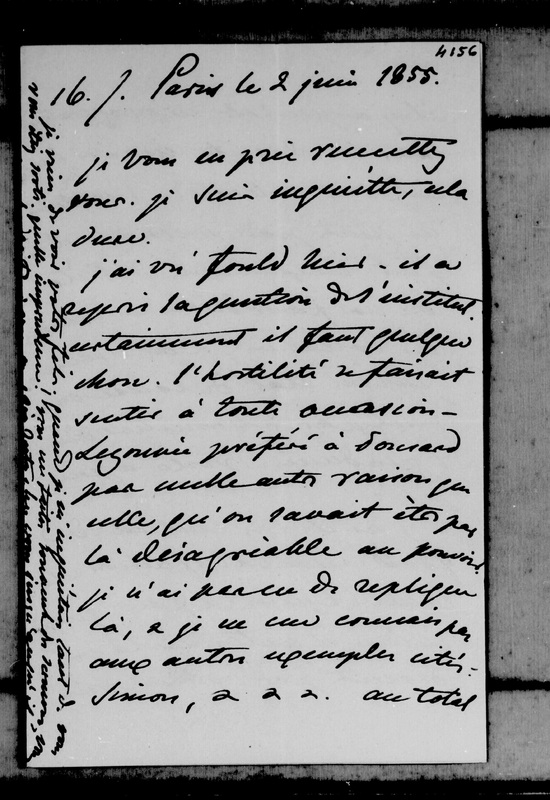 4156
16. J. Paris le 2 juin 1855.
je vous en prie remettez
vous. je suis inquiette, cela
dure.
j'ai vu Fould hier. il a
repris la question de l'institut.
certainement il faut quelque
chose. l'hostilité se faisait
sentir à toute occasion -
Legouvié préféré à Ponsard
par nulle autre raison que
celle, qu'on savait être par
là désagréable au pouvoir.
je n'ai pas eu de replique
là, & je ne me connais pas
aux autres exemples cités.
Simon, & & &. au total
je viens de voir votre fille, quand je m'inquiétais tant de vous
vous étiez sorti, quelle imprudence!